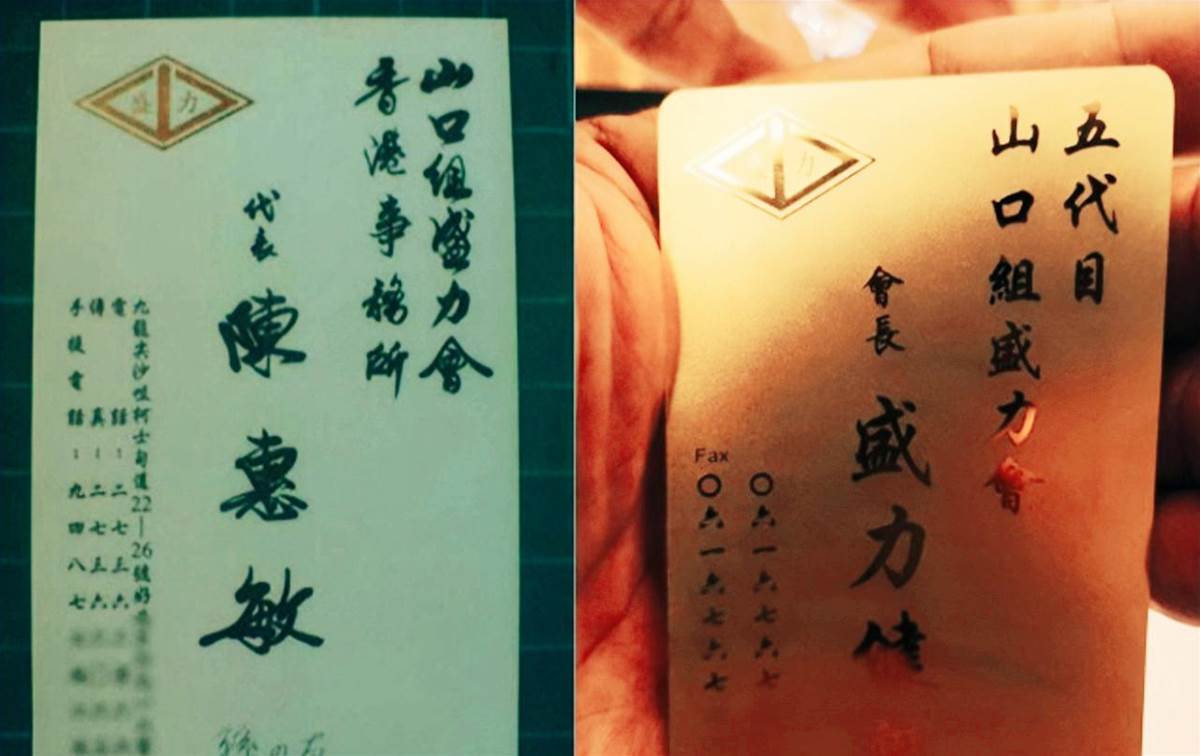 盛力
山口組盛力會
香港事務所
代表
陳惠敏
九龍尖沙咀柯士甸道22—26號好
電話：二七三六
傳真：二七三六
手提電話：九四八七
力
五代目
山口組盛力會
會長
盛力
〇六一六七六七
Fax
〇六一六七六七